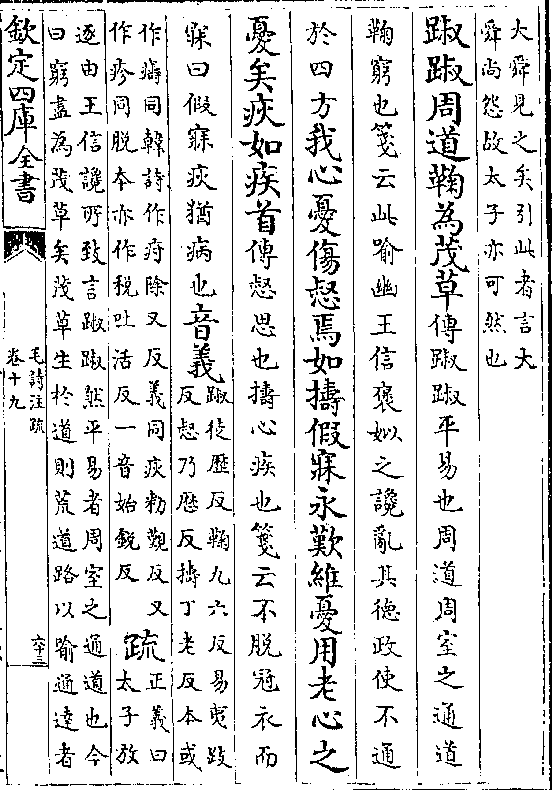 大舜見之矣引此者言大
舜尚怨故太子亦可然也
踧踧周道鞫為茂草傳踧踧平易也周道周室之通道
鞫窮也箋云此喻幽王信褒姒之讒亂其德政使不通
於四方我心憂傷惄焉如擣假寐永歎維憂用老心之
憂矣疢如疾首傳惄思也擣心疾也箋云不脫冠衣而
寐曰假寐疢猶病也音義
踧徒歷反鞫九六反易夷跂
反惄乃歷反擣丁老反本或
作㿒同韓詩作疛除又反義同疢勑覲反又
作疹同脫本亦作稅吐活反一音始銳反
疏
正義曰
太子放
逐由王信讒所致言踧踧然平易者周室之通道也今
曰窮盡為茂草矣茂草生於道則荒道路以喻通達者
欽定四庫全書
毛詩注疏
卷十九
六十三